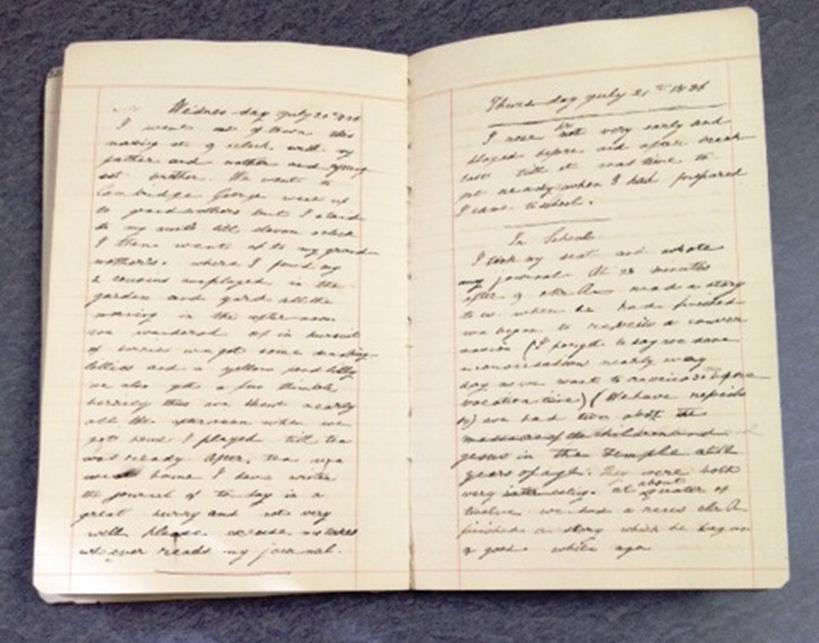 Wednes day July 20th 1836
I went out of town this
morning at 9 o'clock with my
father and mother and young
est brother. We went to
Cambridge George went up
to grandmothers but I staid
at my aunts till eleven oclock
I then went up to my grand
mothers. where I found my
2 cousins we played in the
garden and yard all the
morning in the after noon
we wandered of in pursuit
of berries we got some
lillies and a yellow pond lilly
we also got a few thimble
berries thus we spent nearly
all the afternoon when we
got home I played till tea
was ready After tea we
went home I have writen
the journal of to day in a
great hurry and not very
well please excuse mistakes
who ever reads my journal.
Thurs day July 21st 1836
I rose not very early and
stayed before and after break
fast till it was time to
get ready when I had prepared
I came to school.
In School
I took my seat and wrote
my journal At 28 minutes
after 9 Mr A read a story
to us. when he had finished
we began to repeat a conver
sation (I forgot to say we have
a conversation nearly every
day as we want to before
vocation time) (We have
) we had two about the
massacre of the children and
jesus in the Temple at 12
years of age. They were both
very interesting. At about quater of
twelve we had a recess Mr A
finished a story which he began
a good while ago